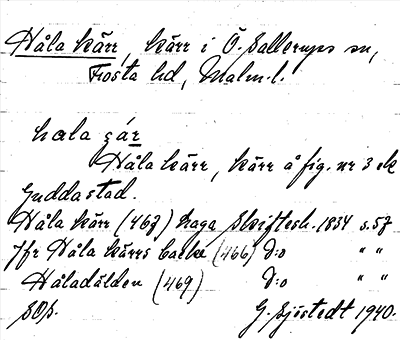 Håla kärr, kärr i Ö. Sallerups sn,
Frosta hd, Malm. l.
hala çár
Håla kärr, kärr å fig. nr 3 ek
Guddastad.
Håla kärr (467) Laga Skiftesh. 1834 s. 57
Jfr Håla kärrs backe (466) D:o " "
Håladälden (469) D:o " "
SOS. G. Sjöstedt 1940.